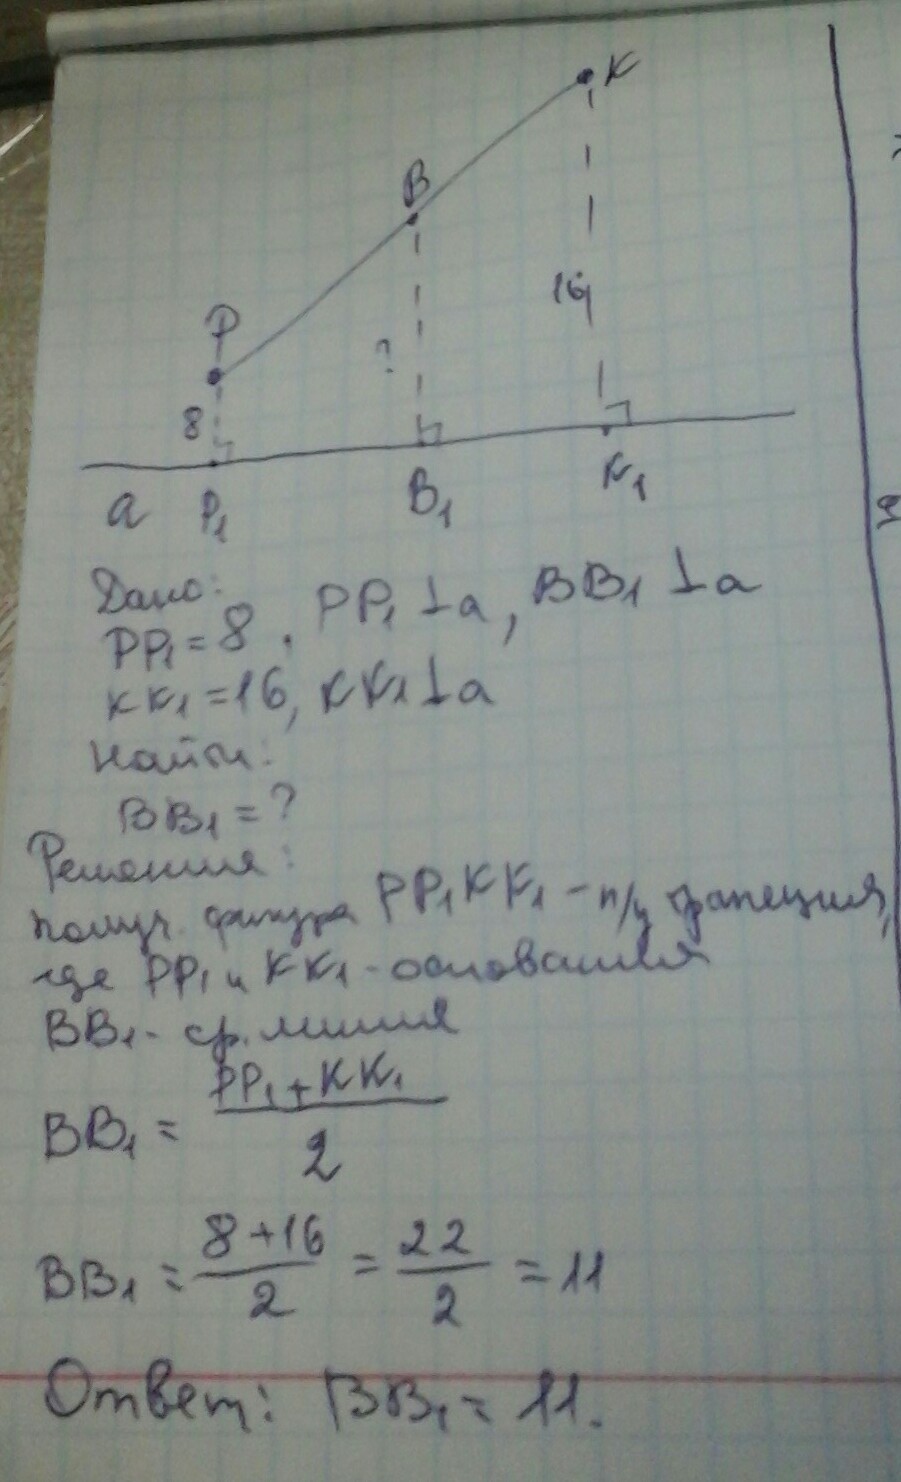 K
B
P
16
?
8
a P₁ B₁ K₁
Дано:
PP₁ = 8, PP₁ ⊥ a, BB₁ ⊥ a
KK₁ = 16, KK₁ ⊥ a
Найти:
BB₁ = ?
Решения:
получ. фигура PP₁KK₁ - п/у трапеция,
где PP₁ и KK₁ - основания
BB₁ - ср. линия
BB₁ = (PP₁ + KK₁)/2
BB₁ = (8+16)/2 = 22/2 = 11
Ответ: BB₁ = 11.